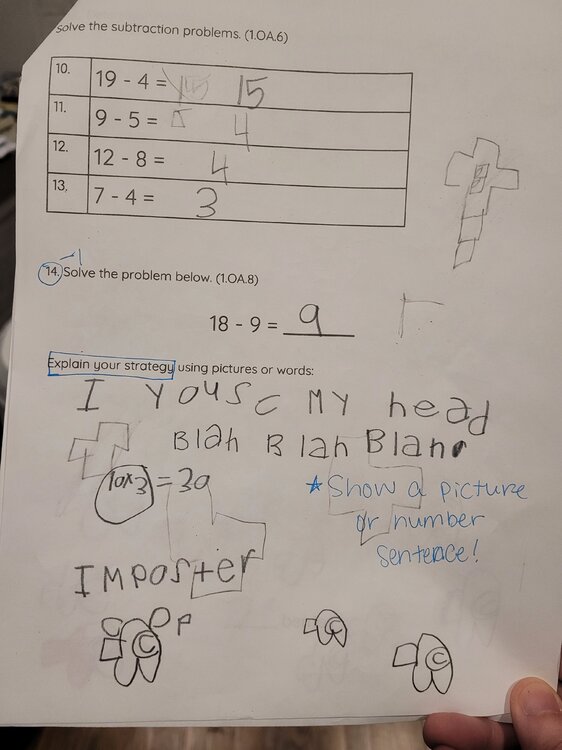 Solve the subtraction problems. (1.OA.6)
10. 19 - 4 = 15
11. 9 - 5 = 4
12. 12 - 8 = 4
13. 7 - 4 = 3
-1
14. Solve the problem below. (1.OA.8)
18 - 9 = 9
Explain your strategy using pictures or words:
I yousc my head
Blah Blah Blah
10x3 = 30
★ Show a picture
or number
sentence!
IMPOSter